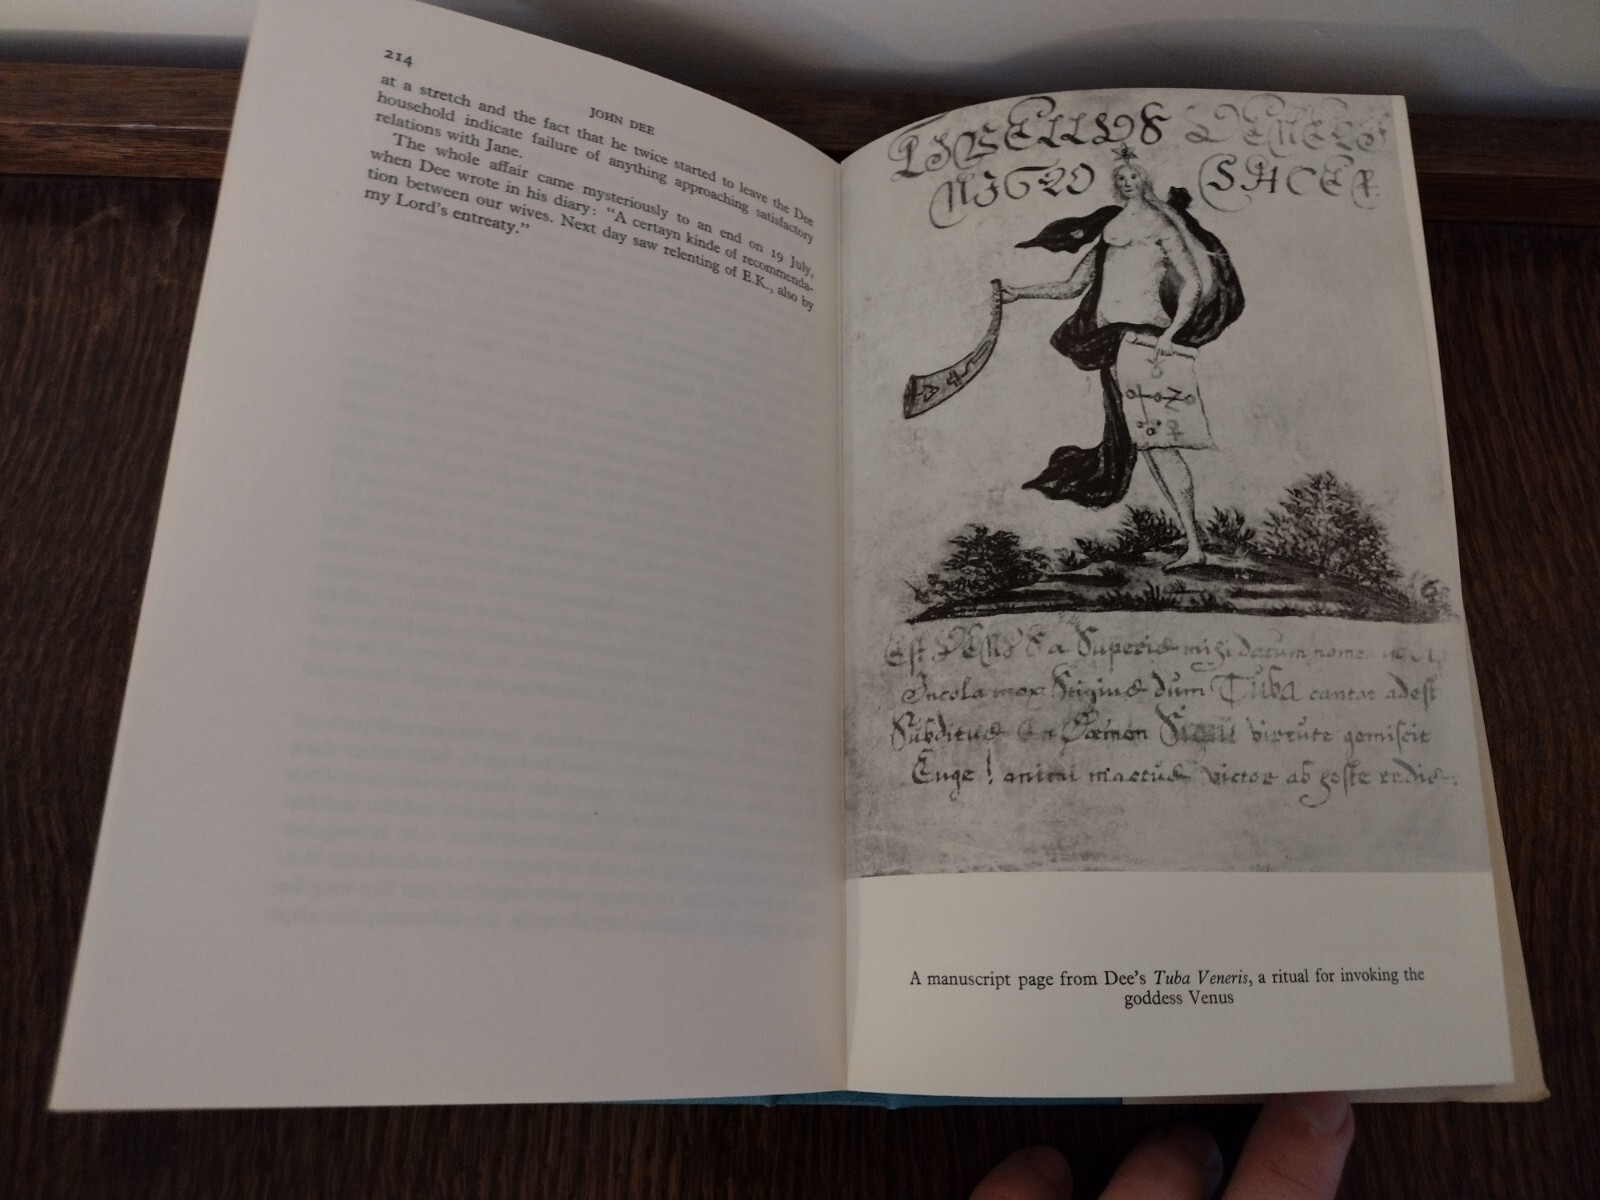 214
JOHN DEE
at a stretch and the fact that he twice started to leave the Dee
household indicate failure of anything approaching satisfactory
relations with Jane.
The whole affair came mysteriously to an end on 19 July,
when Dee wrote in his diary: "A certayn kinde of recommenda-
tion between our wives. Next day saw relenting of E.K., also by
my Lord's entreaty."
LIBELLUS VENERI
NIGRO SACER
Est VENUS a Superis mihi datum nomen
Incola mox Stigius dum Tuba cantat adest
Subditus En Dæmon virtute gemiscit
Euge! animi mactus victor ab hoste redis.
A manuscript page from Dee's Tuba Veneris, a ritual for invoking the
goddess Venus